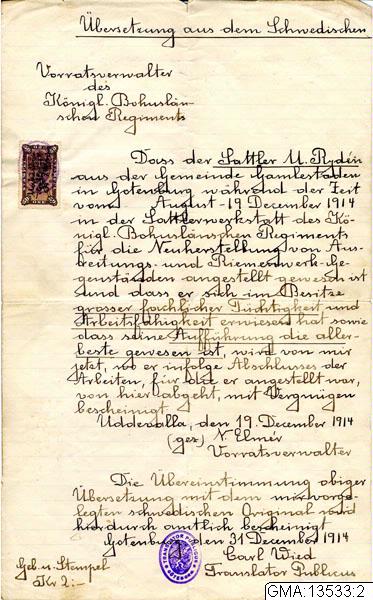 Übersetzung aus dem Schwedischen
Vorratsverwalter
des
Königl. Bohuslän-
schen Regiments
Dass der Sattler M. Rydén
aus der Gemeinde Gamlestaden
in Gotenburg während der Zeit
vom August - 19 December 1914
in der Sattlerwerkstatt des Kö-
nigl. Bohuslänschen Regiments
für die Neuherstellung von Aus-
reitungs- und Riemenwerk-Ge-
genständen angestellt gewesen ist
und dass er sich im Besitze
grosser fachlicher Tüchtigkeit und
Arbeitsfähigkeit erwiesen hat sowie
dass seine Aufführung die aller-
beste gewesen ist, wird von mir
jetzt, wo er infolge Abschlusses der
Arbeiten, für die er angestellt war,
von hier abgeht, mit Vergnügen
bescheinigt.
Uddevalla, den 19. December 1914
(gez) N. Elmér
Vorratsverwalter
Die Übereinstimmung obiger
Übersetzung mit dem mir vorge-
legten schwedischen Original wird
hierdurch amtlich bescheinigt
Gotenburg den 31 December 1914
Carl Wied
Translator Publicus
Geb. u. Stempel
Kr 2:-
GMA:13533:2